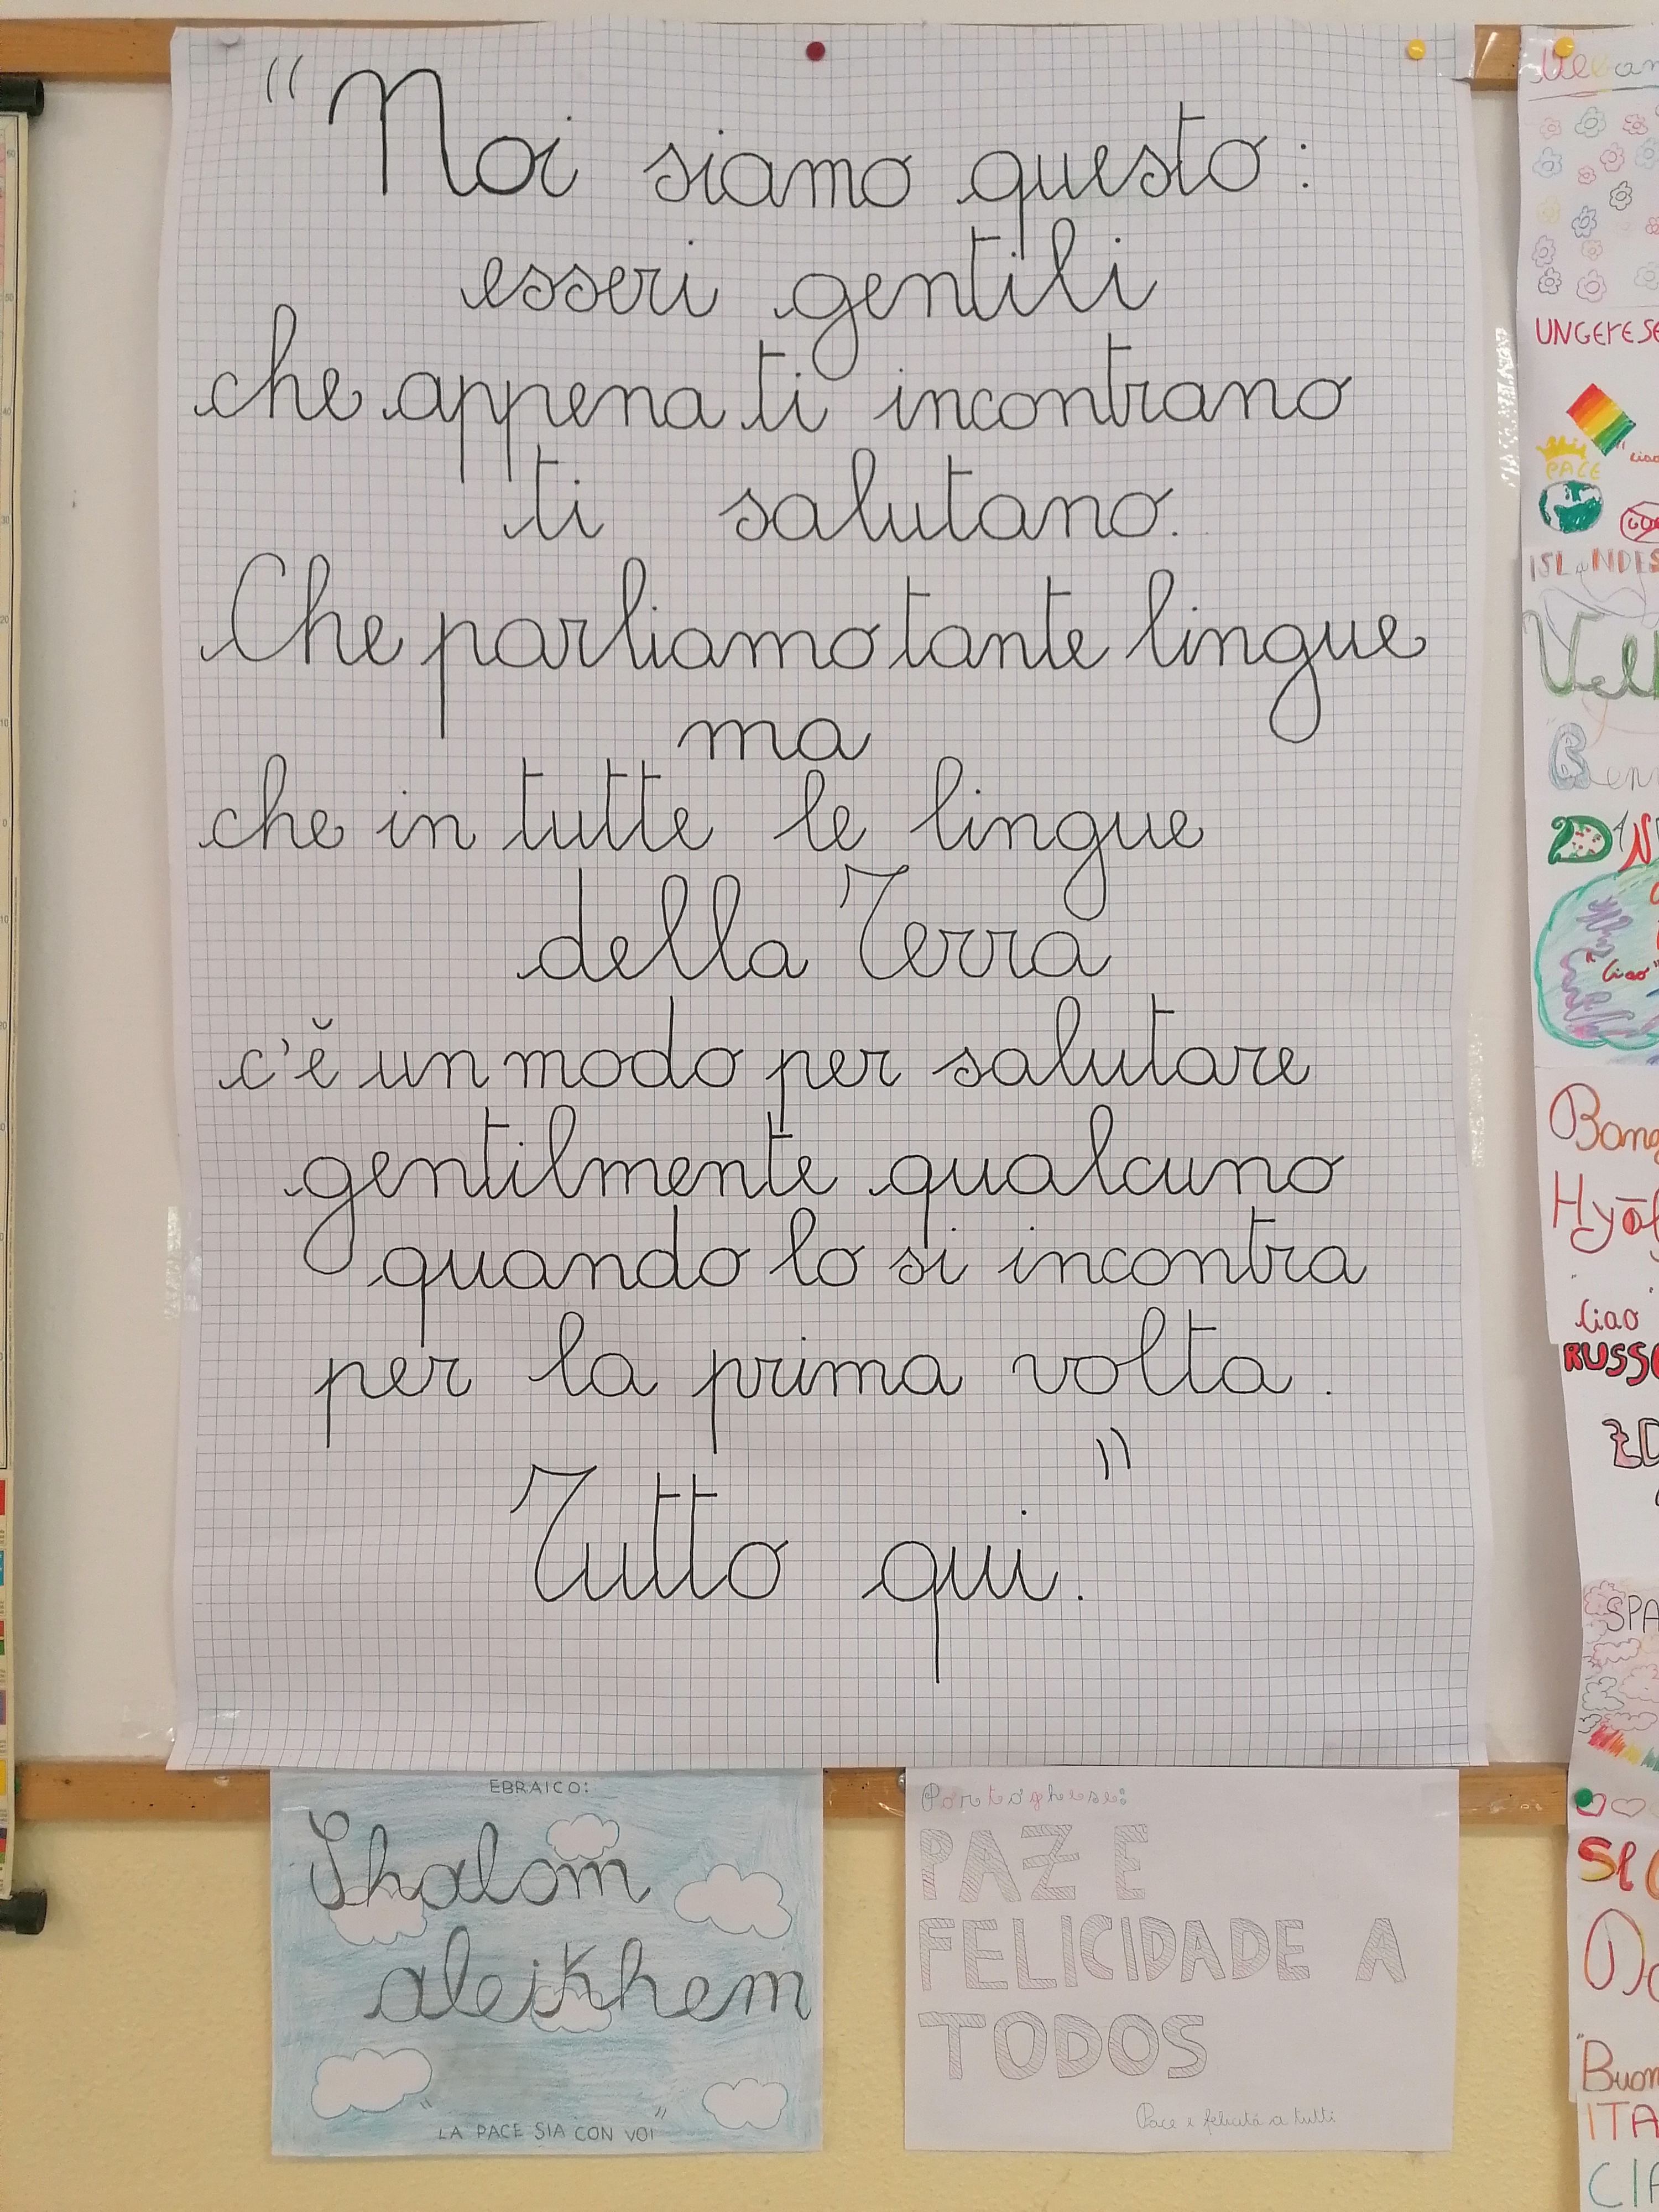 "Noi siamo questo:
esseri gentili
che appena ti incontrano
ti salutano.
Che parliamo tante lingue
ma
che in tutte le lingue
della Terra
c'ĕ un modo per salutare
gentilmente qualcuno
quando lo si incontra
per la prima volta.
Tutto qui."
EBRAICO:
Shalom
aleikhem
"LA PACE SIA CON VOI"
Portoghese:
PAZ E
FELICIDADE A
TODOS
Pace e felicità a tutti
PACE
"Ciao"
Ciao